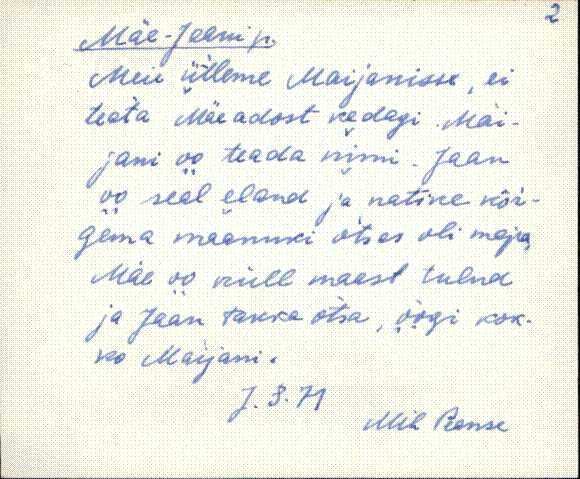 2
Mäe-Jaani p.
Meie ütleme Maijanisse, ei
teata Mäeadost kedagi. Mäi-
jani oo teada nimi. Jaan
oo seal eland ja natike kõr-
gema maanuki otsas oli maja,
Mäe oo küll maast tulnd
ja Jaan takka otsa, öögi kok-
ko Maijani.
J. S. 71